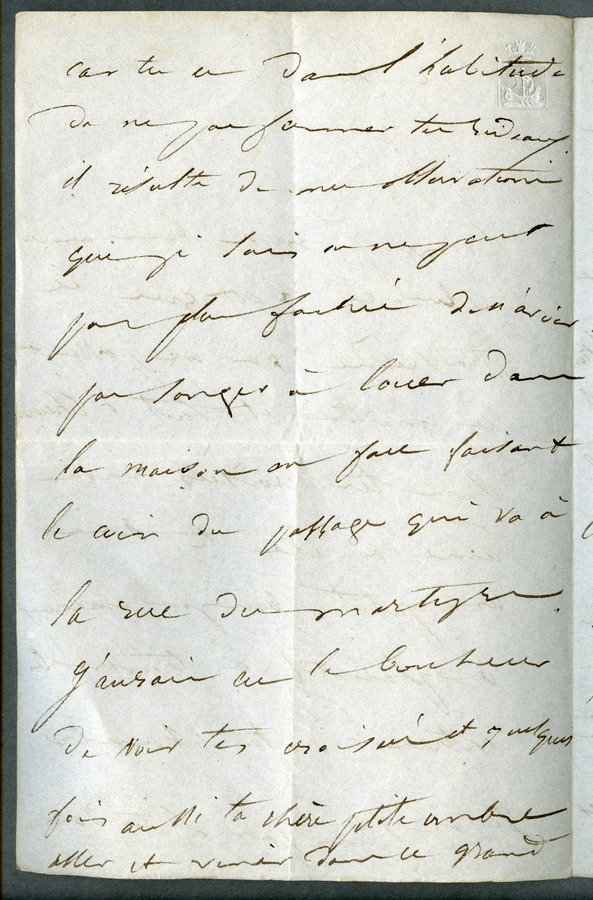 car tu es dans l'habitude
de ne pas fermer tes rideaux
il résulte de mes observations
que je suis on ne peut
pas plus fachée de n'avoir
pas songer à louer dans
la maison en face faisant
le coin du passage qui va à
la rue des martyrs.
j'aurais eu le bonheur
de voir tes croisées et quelques
fois aussi ta chère petite ombre
aller et venir dans ce grand